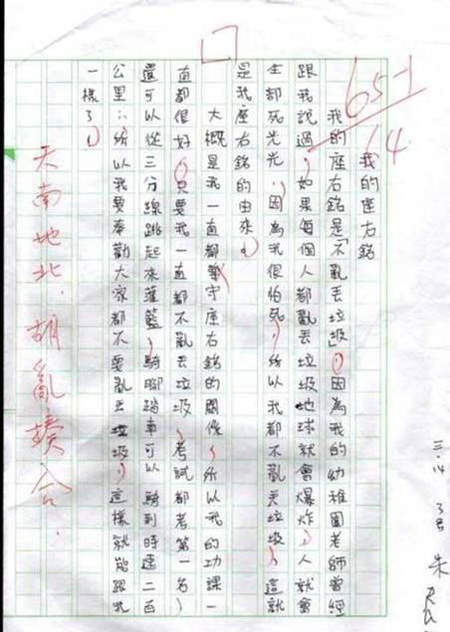 我的座右銘
我的座右銘是「不亂丟垃圾」,因為我的幼稚園老師曾經
跟我說過,如果每個人都亂丟垃圾地球就會爆炸,人就會
全都死光光,因為我很怕死,所以我都不亂丟垃圾,這就
是我座右銘的由來。
大概是我一直都遵守座右銘的關係,所以我的功課一
直都很好,只要我一直都不亂丟垃圾,考試都考第一名,
還可以從三分線跳起來灌籃,騎腳踏車可以騎到時速二百
公里,所以我要奉勸大家都不要亂丟垃圾,這樣就能跟我
一樣了。
65-1
64
天南地北.胡亂揍合.
朱